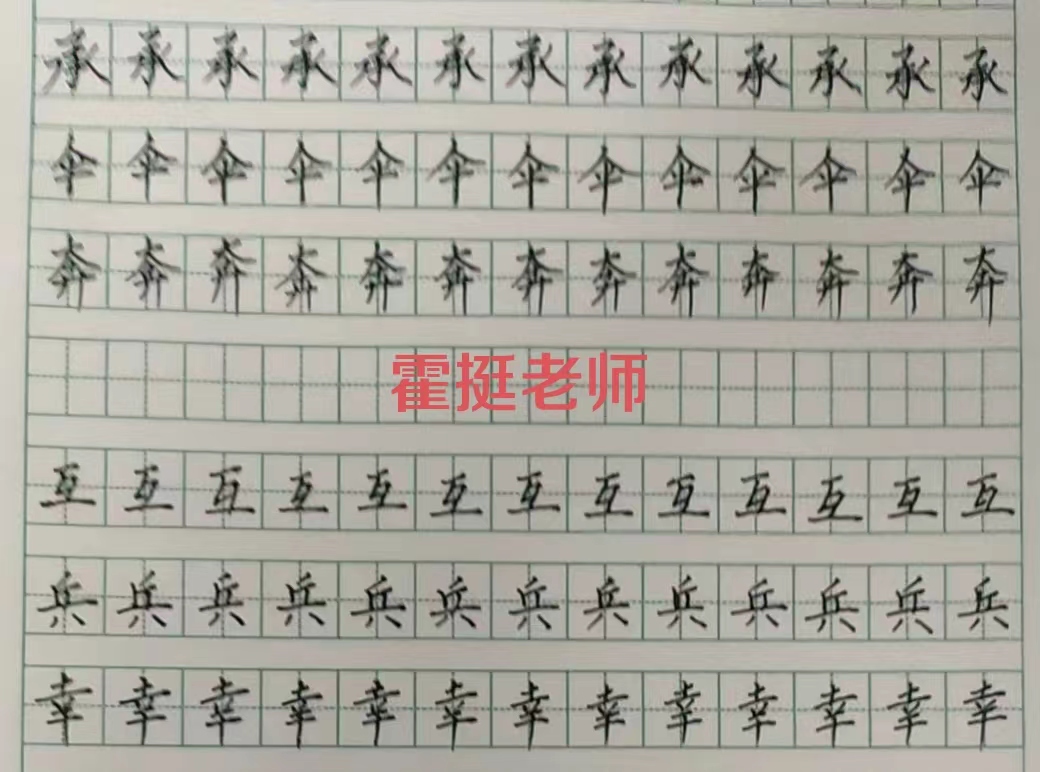 承承承承承承承承承承承承承
伞伞伞伞伞伞伞伞伞伞伞伞伞
奔奔奔奔奔奔奔奔奔奔奔奔奔
霍挺老师
互互互互互互互互互互互互互
兵兵兵兵兵兵兵兵兵兵兵兵兵
幸幸幸幸幸幸幸幸幸幸幸幸幸